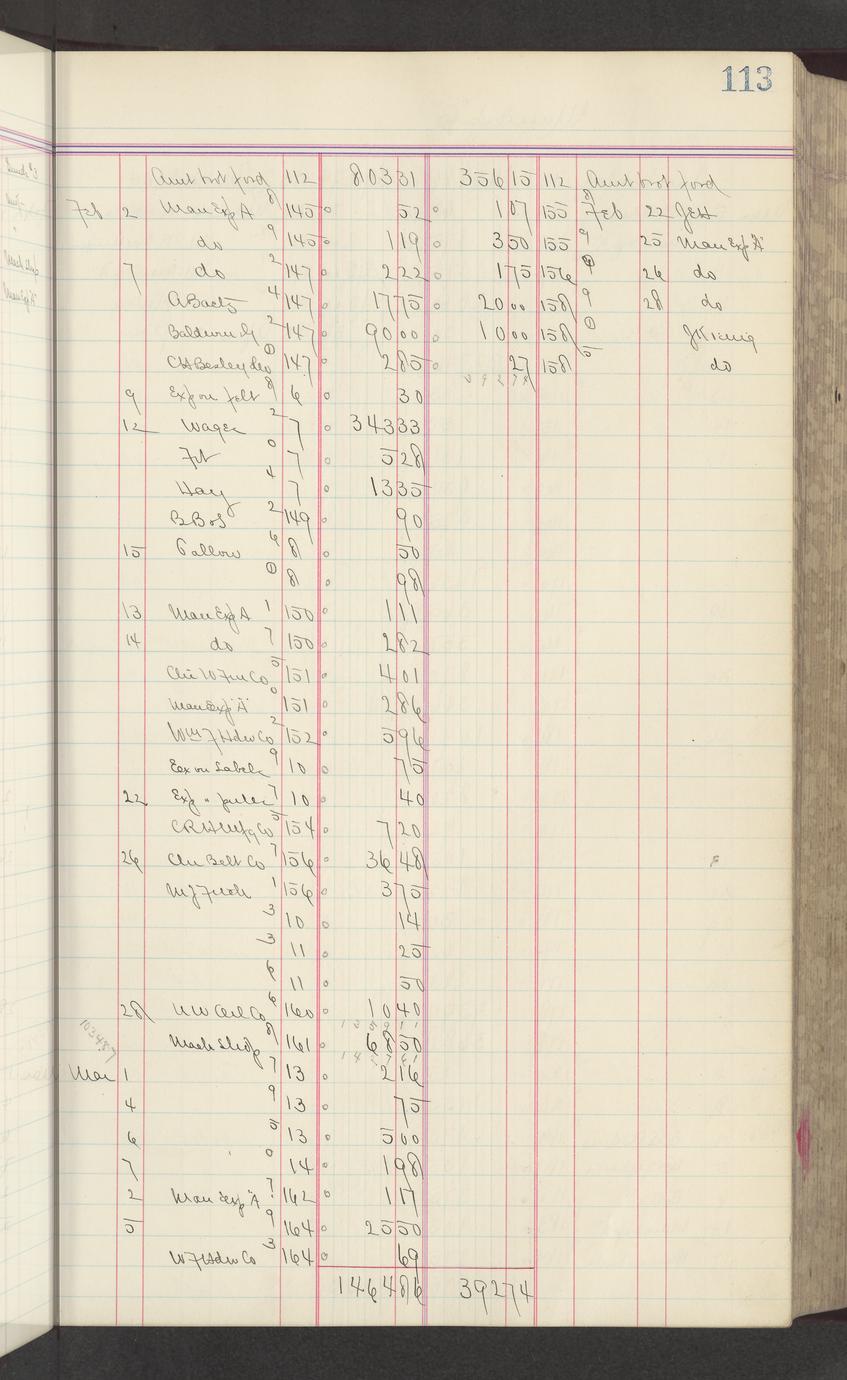 113
Amt brot ford 112 803 31 356 15 112 Amt brot ford
Feb 2 Man Exp A 8 145 52 1 07 155 8 Feb 22
do 9 145 1 19 3 50 155 9 25 Man Exp "A"
7 do 2 147 2 22 1 75 156 26 do
4 147 17 75 20 00 158 9 28 do
Baldwin 2 147 90 00 10 00 158 0
CH Besley & Co 0 147 2 85 27 158 5 do
392 74
9 Exp on felt 8 6 30
12 Wages 2 7 343 33
Frt 0 7 5 28
Hay 4 7 13 35
2 149 90
15 6 8 50
0 8 98
13 Man Exp A 1 150 1 11
14 do 7 150 2 82
Co 5 151 4 01
Man Exp "A" 0 151 2 86
Hdw Co 2 152 5 96
Exp on Labels 9 10 75
22 Exp " 7 10 40
Mfg Co 5 154 7 20
26 Chi Belt Co 7 156 36 48
1 156 3 75
3 10 14
3 11 25
6 11 50
28 Co 6 160 10 40
Mach Shop 8 161 68 50
Mar 1 7 13 2 16
4 9 13 75
6 5 13 5 00
7 0 14 1 98
2 Man Exp "A" 7 162 1 17
5 9 164 25 50
Hdw Co 3 164 69
1464 86 392 74